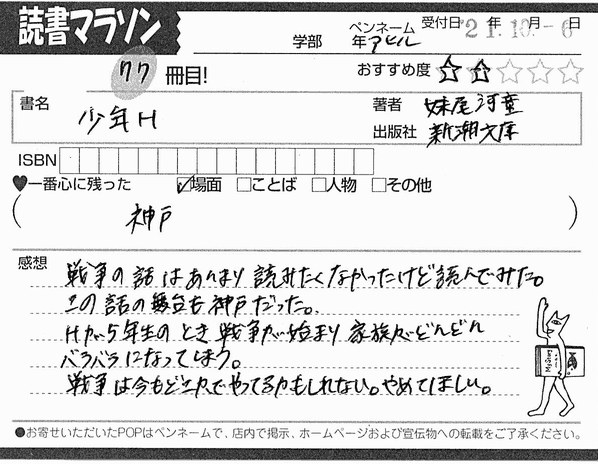 読書マラソン
学部
ペンネーム
年アヒル
受付日 '21.10.-6 年 月 日
77 冊目!
おすすめ度 ☆☆☆☆☆
書名
少年H
著者 妹尾河童
出版社 新潮文庫
ISBN
♥一番心に残った ☑場面 □ことば □人物 □その他
( 神戸 )
感想
戦争の話はあんまり読みたくなかったけど読んでみた。
この話の舞台も神戸だった。
Hが5年生のとき戦争が始まり家族がどんどん
バラバラになってしまう。
戦争は今もどこかでやってるかもしれない。やめてほしい。
●お寄せいただいたPOPはペンネームで、店内で掲示、ホームページおよび宣伝物への転載をご了承ください。